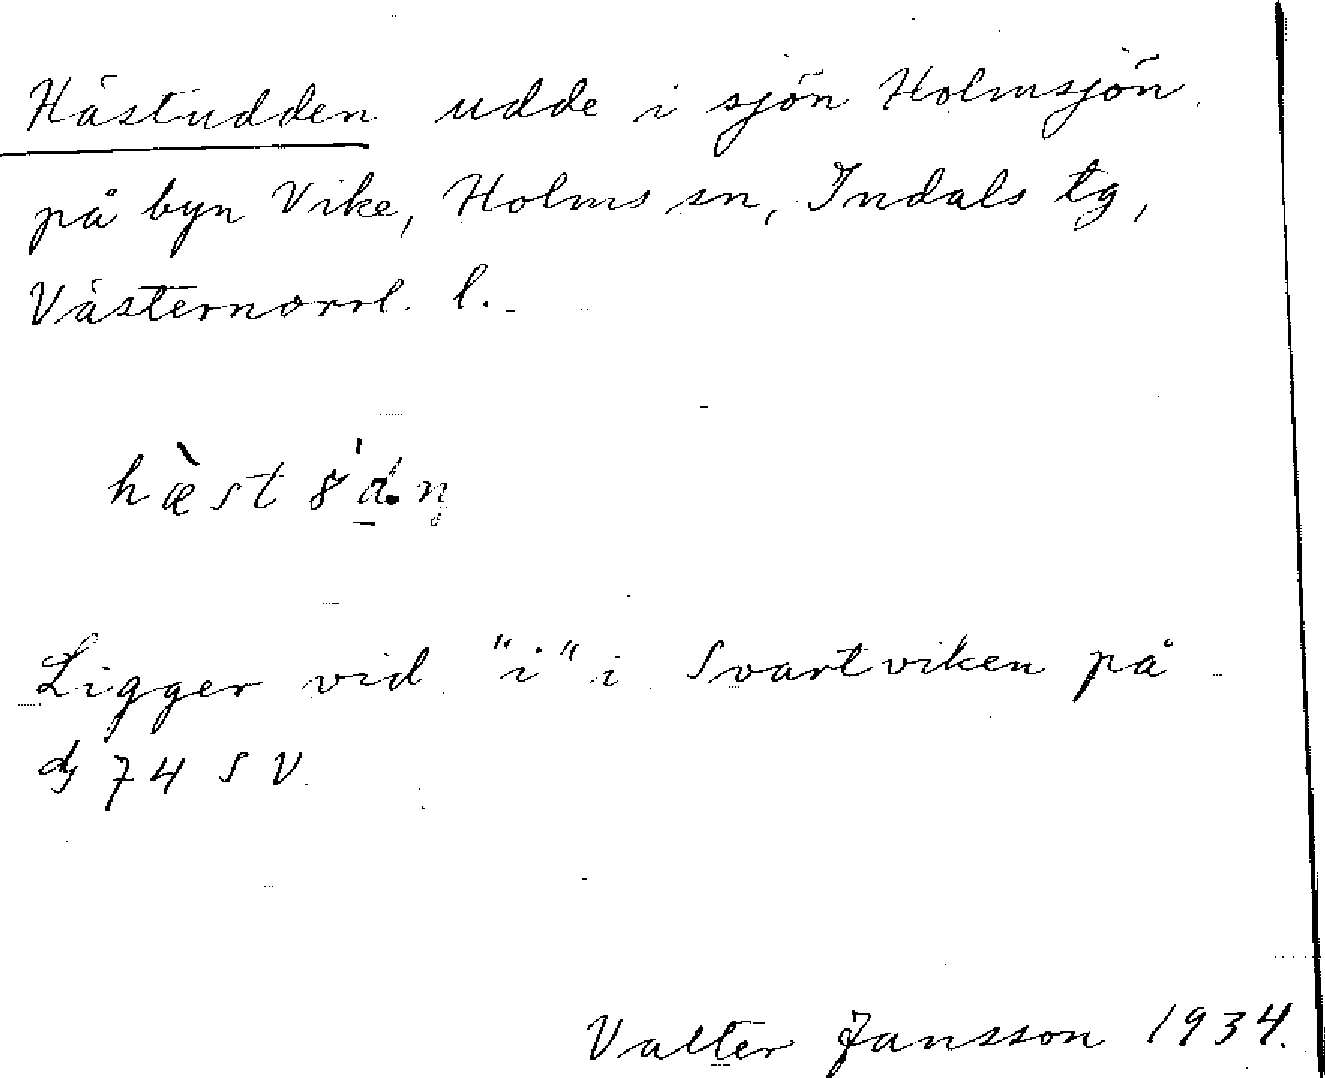 Hästudden udde i sjön Holmsjön
på byn Vike, Holms sn, Indals tg,
Västernorrl. l.
Ligger vid "i" i Svartviken på
74 SV
Valter Jansson 1934.